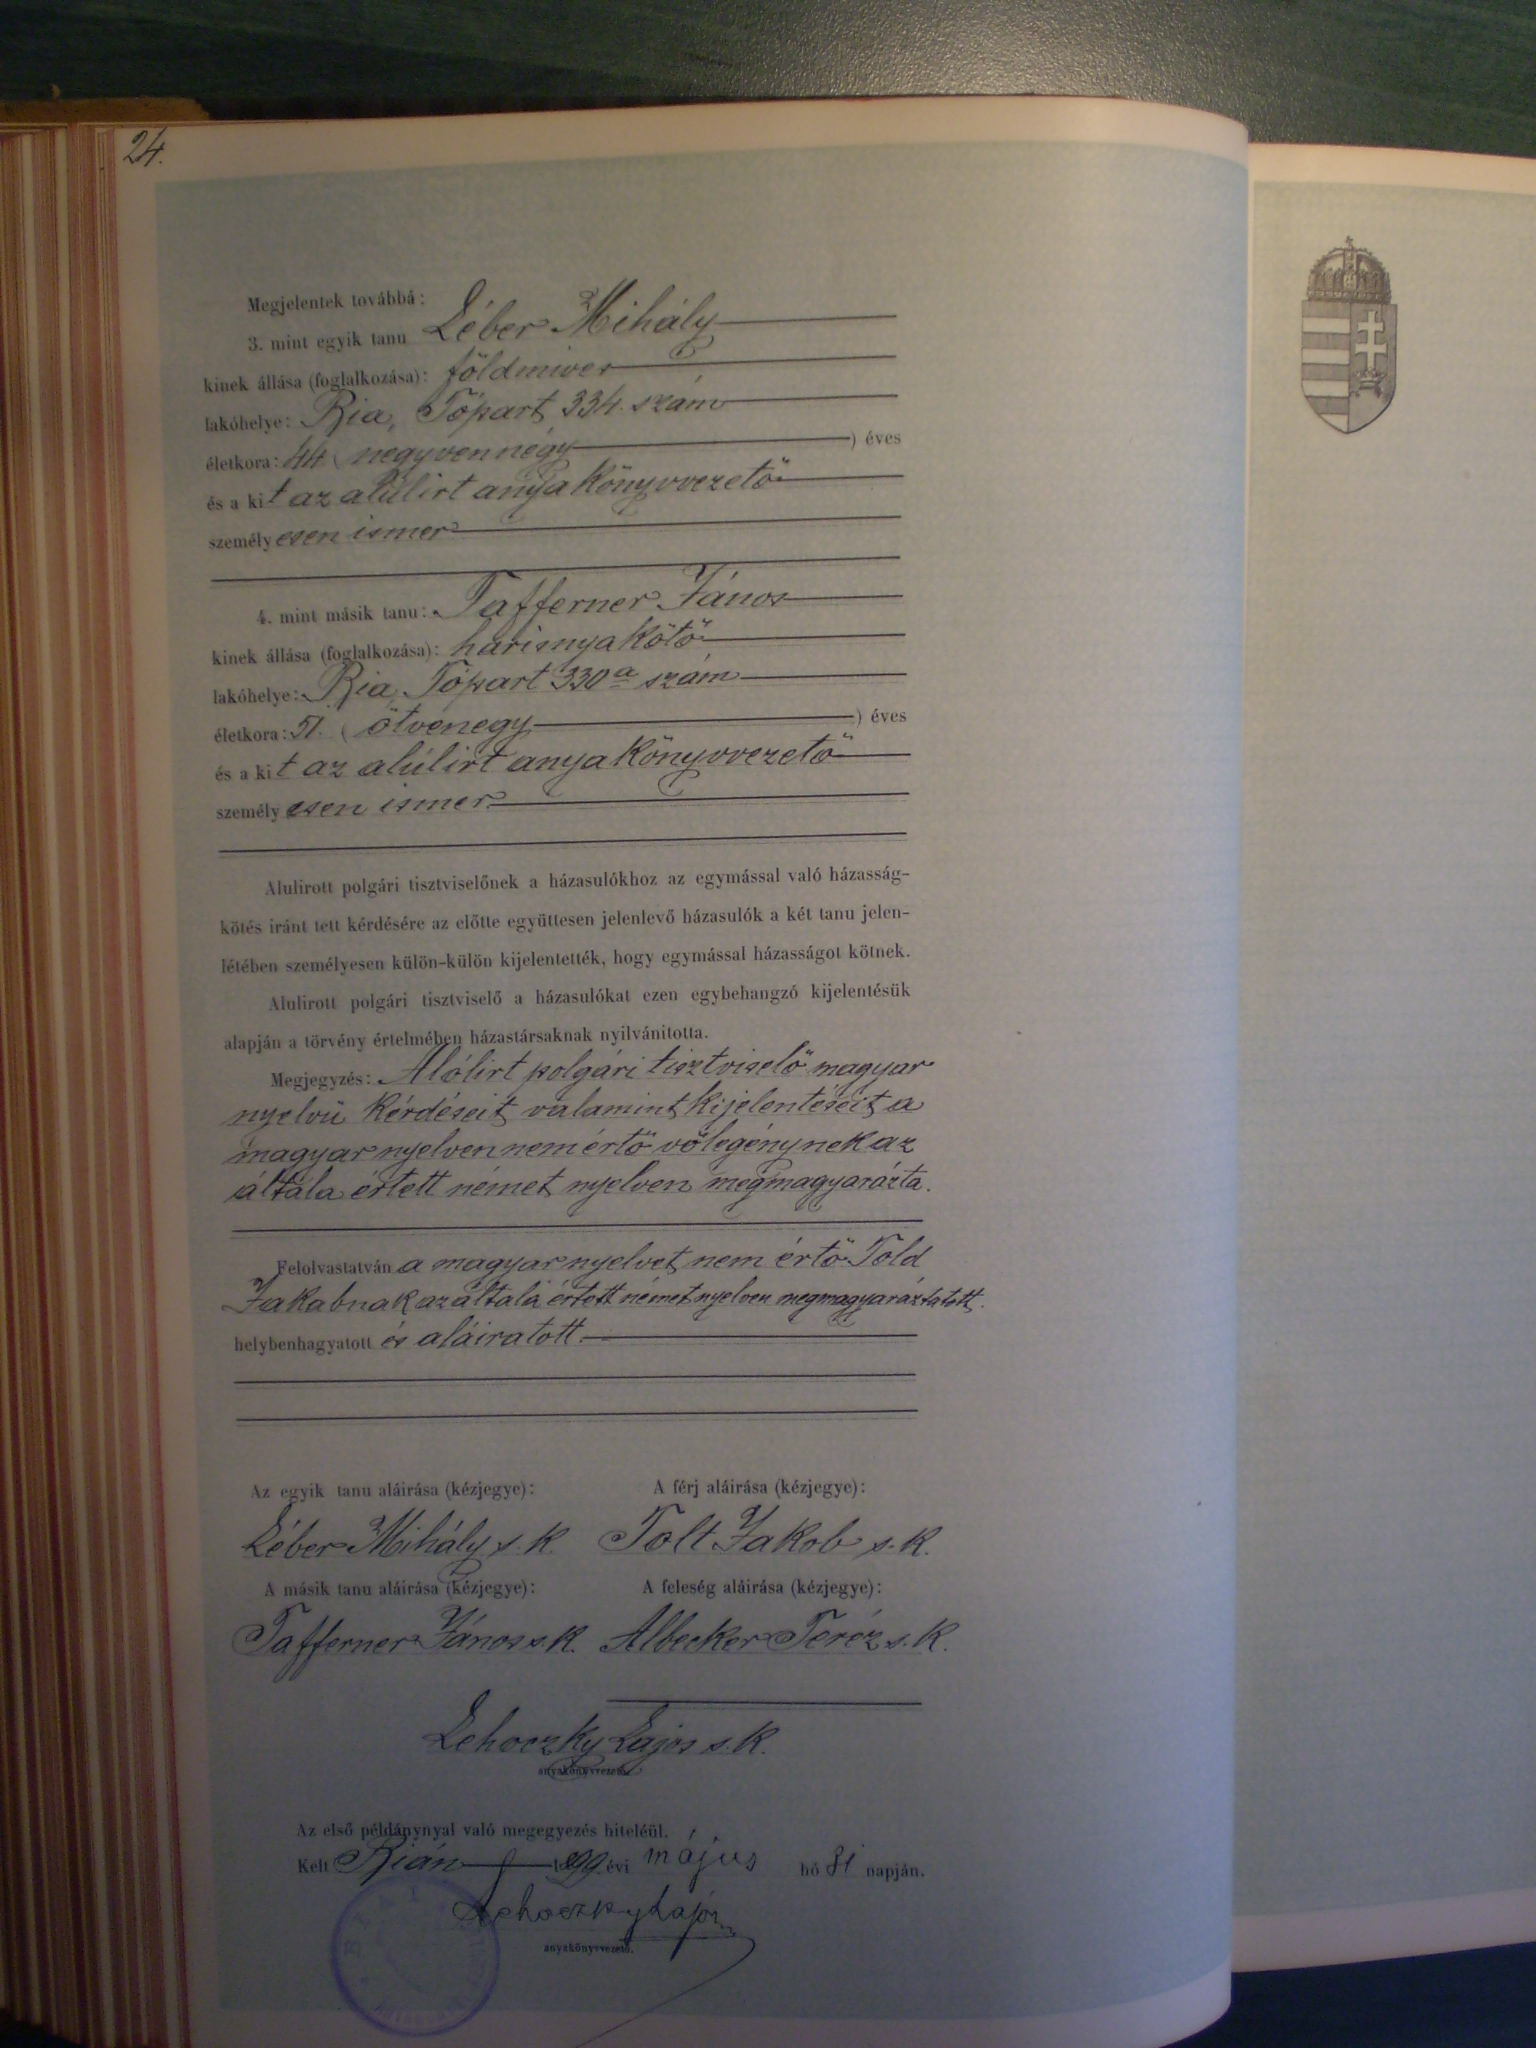 24.
Megjelentek továbbá:
3. mint egyik tanu Léber Mihály
kinek állása (foglalkozása): földmives
lakóhelye: Bia, Tópart 334. szám
életkora: 44 ( negyvennégy ) éves
és a kit az alúlirt anyakönyvvezető
személyesen ismer
4. mint másik tanu: Tafferner János
kinek állása (foglalkozása): harisnyakötő
lakóhelye: Bia, Tópart 330a szám
életkora: 51. ( ötvenegy ) éves
és a kit az alúlirt anyakönyvvezető
személyesen ismer
Alulirott polgári tisztviselőnek a házasulókhoz az egymással való házasság-
kötés iránt tett kérdésére az előtte együttesen jelenlevő házasulók a két tanu jelen-
létében személyesen külön-külön kijelentették, hogy egymással házasságot kötnek.
Alulirott polgári tisztviselő a házasulókat ezen egybehangzó kijelentésük
alapján a törvény értelmében házastársaknak nyilvánitotta.
Megjegyzés: Alólirt polgári tisztviselő magyar
nyelvü kérdéseit, valamint kijelentéseit a
magyar nyelven nem értő vőlegénynek az
általa értett német nyelven megmagyarázta.
Felolvastatván a magyar nyelvet nem értő Told
Jakabnak az általa értett német nyelven megmagyaráztatott.
helybenhagyatott és aláiratott.
Az egyik tanu aláirása (kézjegye): A férj aláirása (kézjegye):
Léber Mihály s. k. Tolt Jakob s. k.
A másik tanu aláirása (kézjegye): A feleség aláirása (kézjegye):
Tafferner János s. k. Albecker Teréz s. k.
Lehoczky Lajos s. k.
anyakönyvvezető.
Az első példánynyal való megegyezés hiteléül.
Kelt Bián 1899 évi május hó 31 napján.
Lehoczky Lajos
anyakönyvvezető.